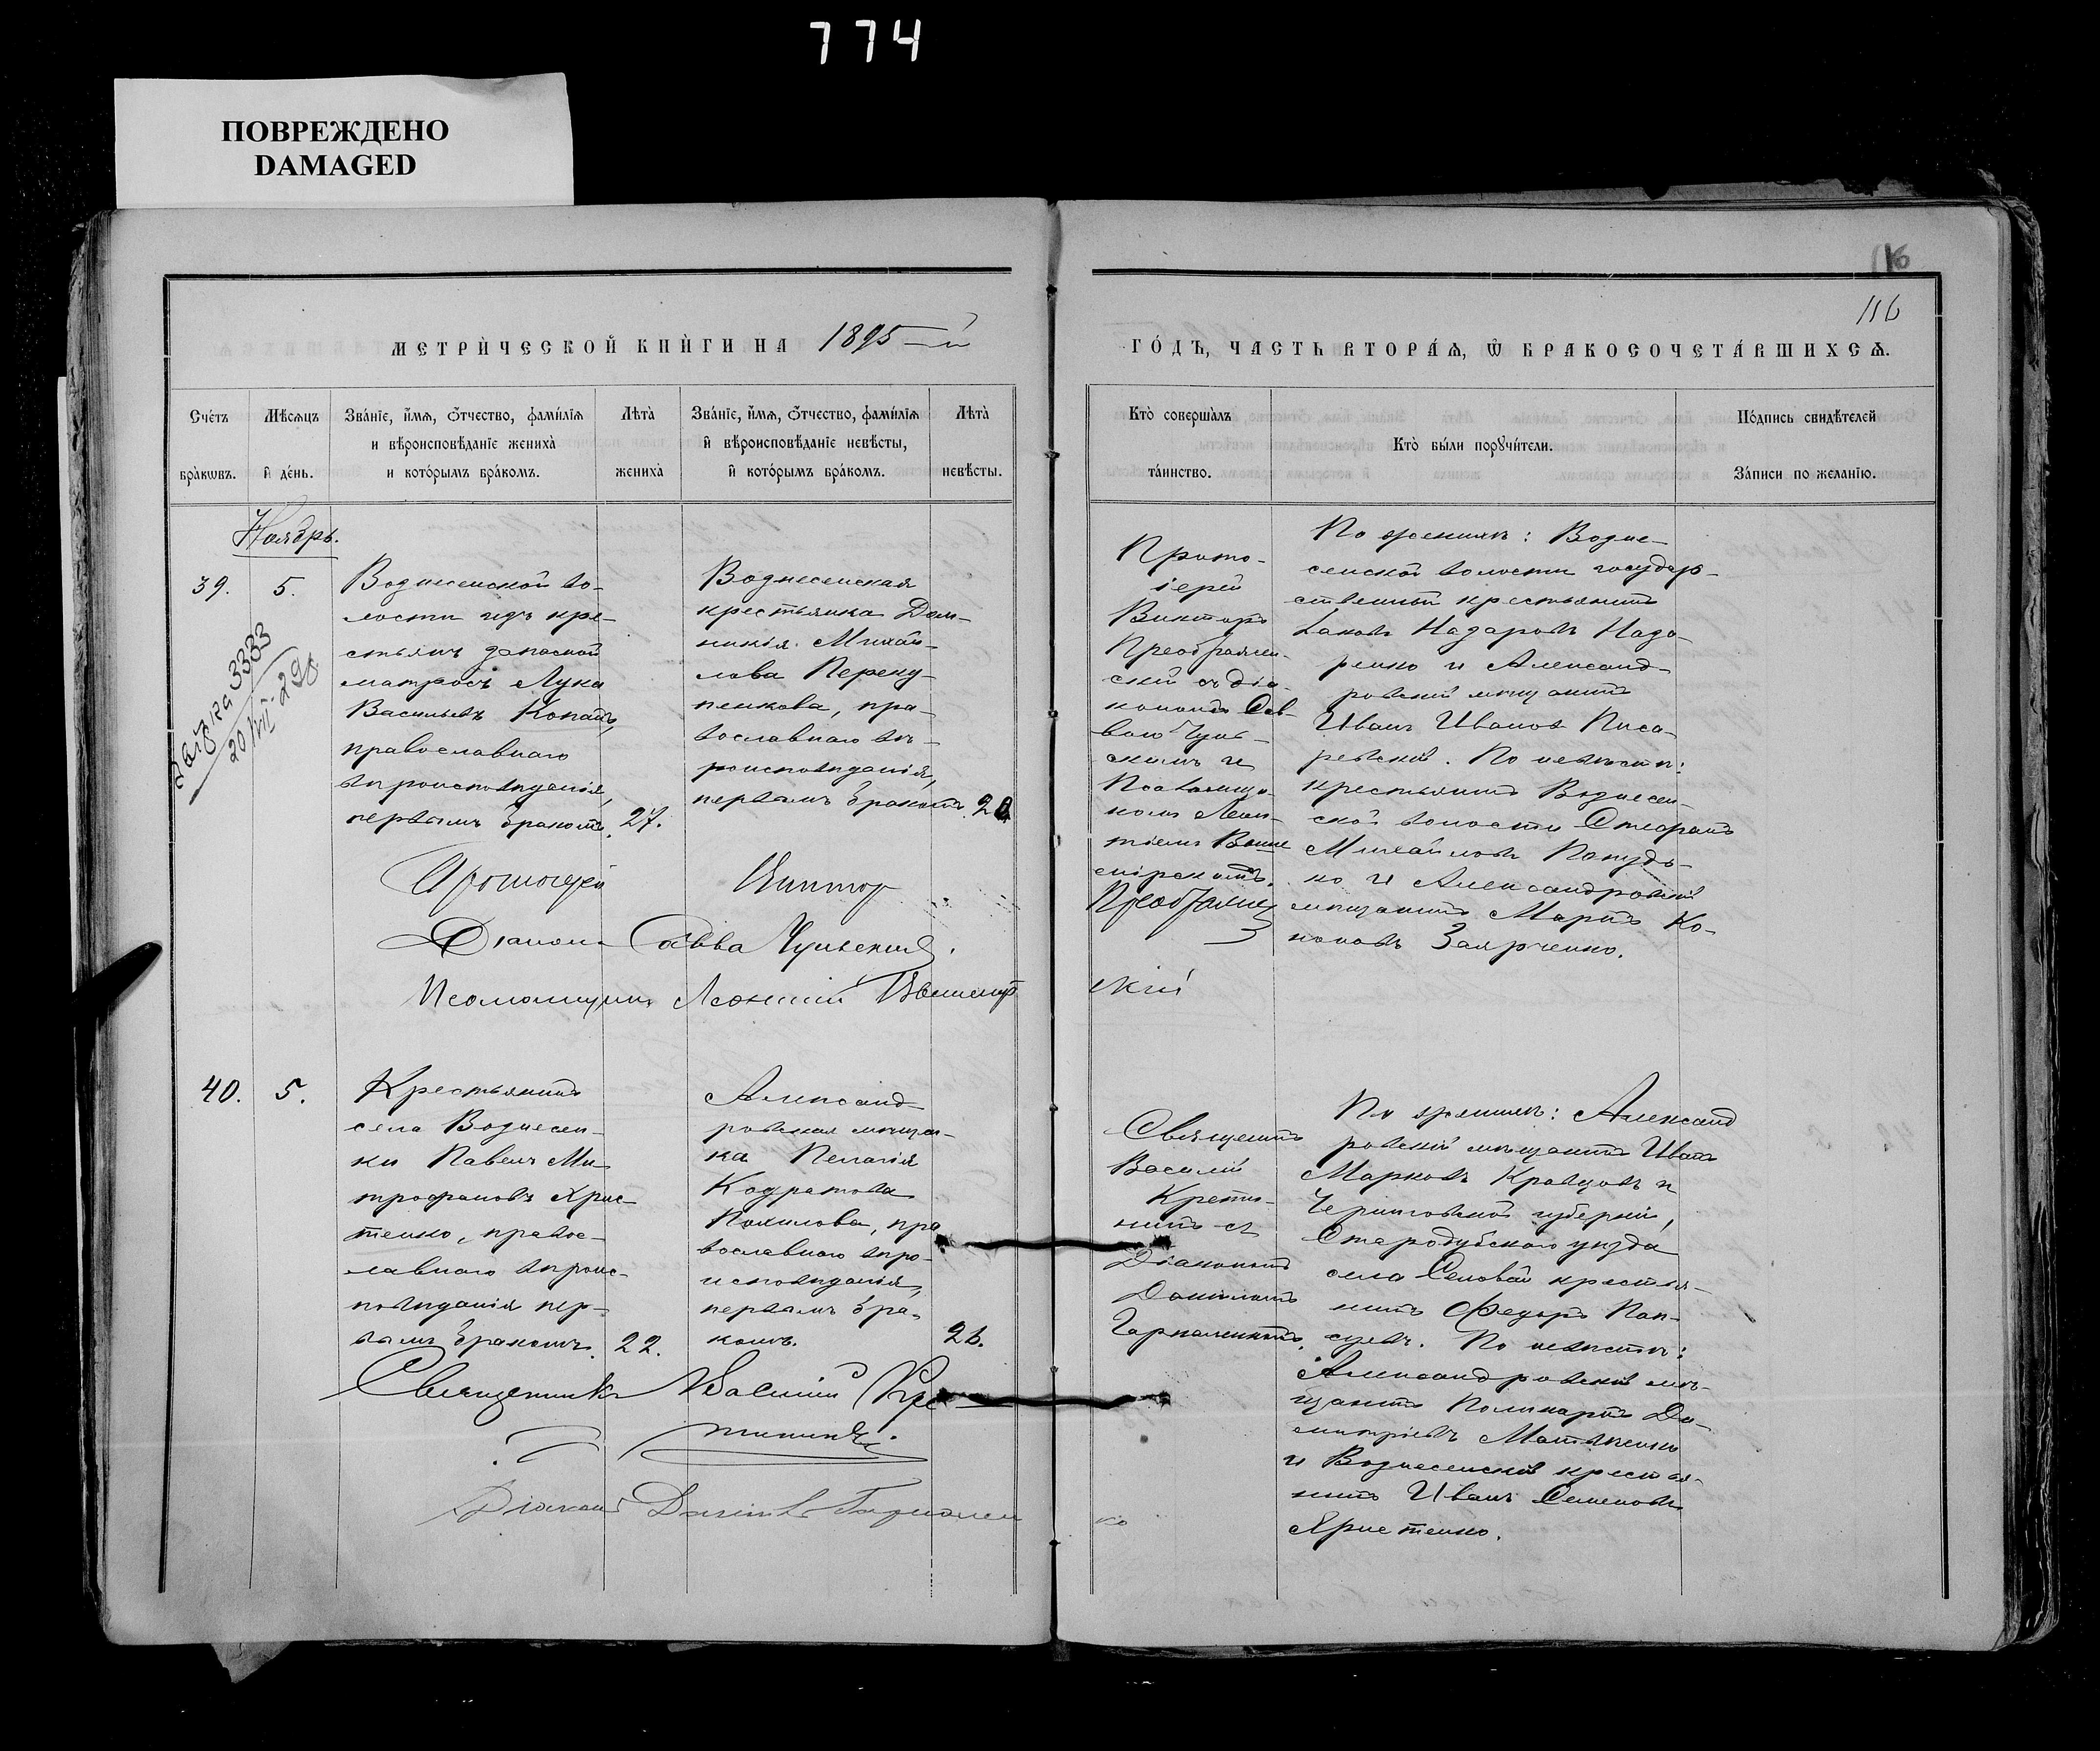 774
ПОВРЕЖДЕНО
DAMAGED
116
116
МЕТРИ́ЧЕСКОЙ КНИ́ГИ НА 1895-й
ГО́ДЪ, ЧАСТЬ ВТОРА́Ѧ, Ѿ БРАКОСОЧЕТА́ВШИХСѦ.
Сче́тъ бра́кωвъ.
Мѣ́сѧцъ и́ де́нь.
Зва́нїе, и́мѧ, ѻ҆́тчество, фами́лїѧ
и вѣроисповѣ́данїе жениха̀
и кото́рымъ бра́комъ.
Лѣта̀ жениха̀
Зва́нїе, и́мѧ, ѻ҆́тчество, фами́лїѧ
и́ вѣроисповѣ́данїе невѣ́сты,
и́ кото́рымъ бра́комъ.
Лѣта̀ невѣ́сты.
Кто̀ соверша̀лъ та́инство.
Кто̀ бы́ли порꙋчи́тели.
По́дпись свидѣ́телей
За́писи по жела́нїю.
Ноябрь.
39.
5.
Вознесенской во-
лости изъ кре-
стьянъ запасной
матросъ Лука
Васильевъ Копацъ,
православнаго
вѣроисповѣданія,
первымъ бракомъ.
27.
Вознесенская
крестьянка Дом-
никія Михай-
лова Переку-
пенкова, пра-
вославнаго вѣ-
роисповѣданія,
первымъ бракомъ.
Прото-
іерей
Викторъ
Преображен-
скій съ діа-
кономъ Сав-
вою Чуль-
скимъ и
Псаломщи-
комъ Леон-
тіемъ
По женихѣ: Возне-
сенской волости государ-
ственный крестьянинъ
Іаковъ Назаровъ Назо-
ренко и Александ-
ровскій мѣщанинъ
Иванъ Ивановъ Писа-
ревскій. По невѣстѣ:
крестьянинъ Вознесен-
ской волости Стефанъ
Михайловъ
и Александровскій
мѣщанинъ Маркъ Ко-
ноновъ Заярченко.
справка 3383
Протоіерей Виктор Преображен
скій
Діаконъ Савва Чульский.
Псаломщикъ Леонтий
40.
5.
Крестьянинъ
села Вознесен-
ки Павелъ Ми-
трофановъ Хрис-
тенко, правос-
лавнаго вѣроис-
повѣданія пер-
вымъ бракомъ.
22.
Александ-
ровская мѣщан-
ка Пелагія
Кодратова
Похилова, пра
вославнаго вѣро-
исповѣданія,
первымъ бра-
комъ.
26.
Священникъ
Василій
Крети-
нинъ съ
Діакономъ
Даниломъ
По женихѣ: Александ
ровскій мѣщанинъ Иванъ
Марковъ Кравцовъ и
Черниговской губерніи,
Стародубскаго уѣзда
села крестья-
нинъ Федоръ
По невѣстѣ:
Александровскій мѣ-
щанинъ Поликарпъ Ди-
митріевъ Матвѣенко
и Вознесенскій крестья-
нинъ Иванъ Семеновъ
Христенко.
Священникъ Василий Кре
тининъ.
Діаконъ Данiилъ
ко